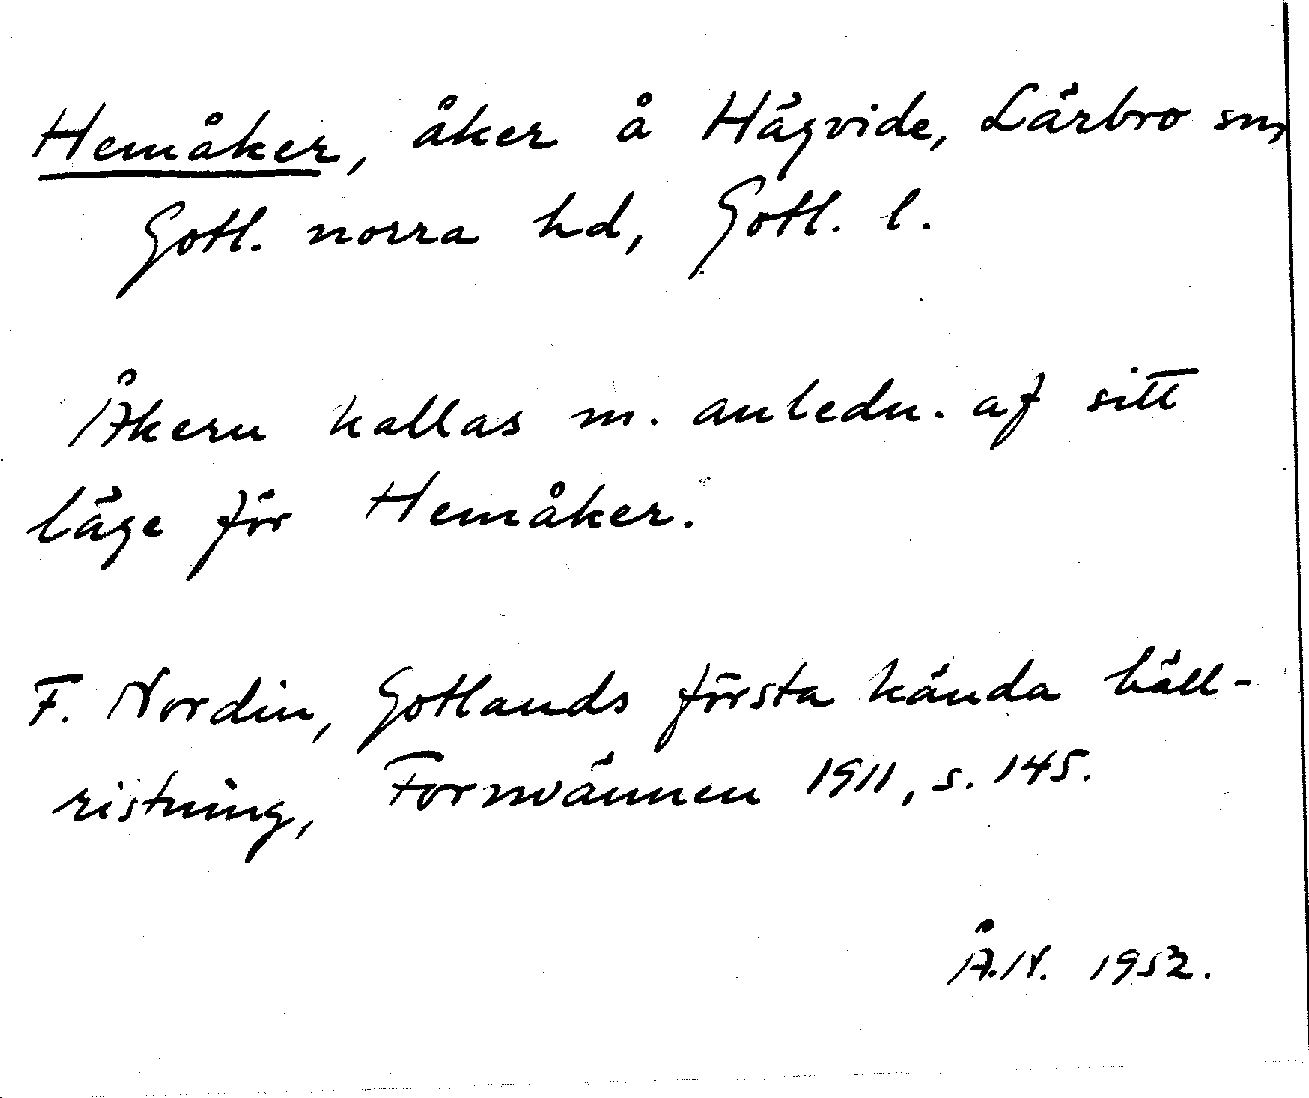 Hemåker, åker å Hägvide, Lärbro sn,
Gotl. norra hd, Gotl. l.
Åkern kallas m. anledn. af sitt
läge för Hemåker.
F. Nordin, Gotlands första kända häll-
ristning, Fornvännen 1911, s. 145.
Å.N. 1952.